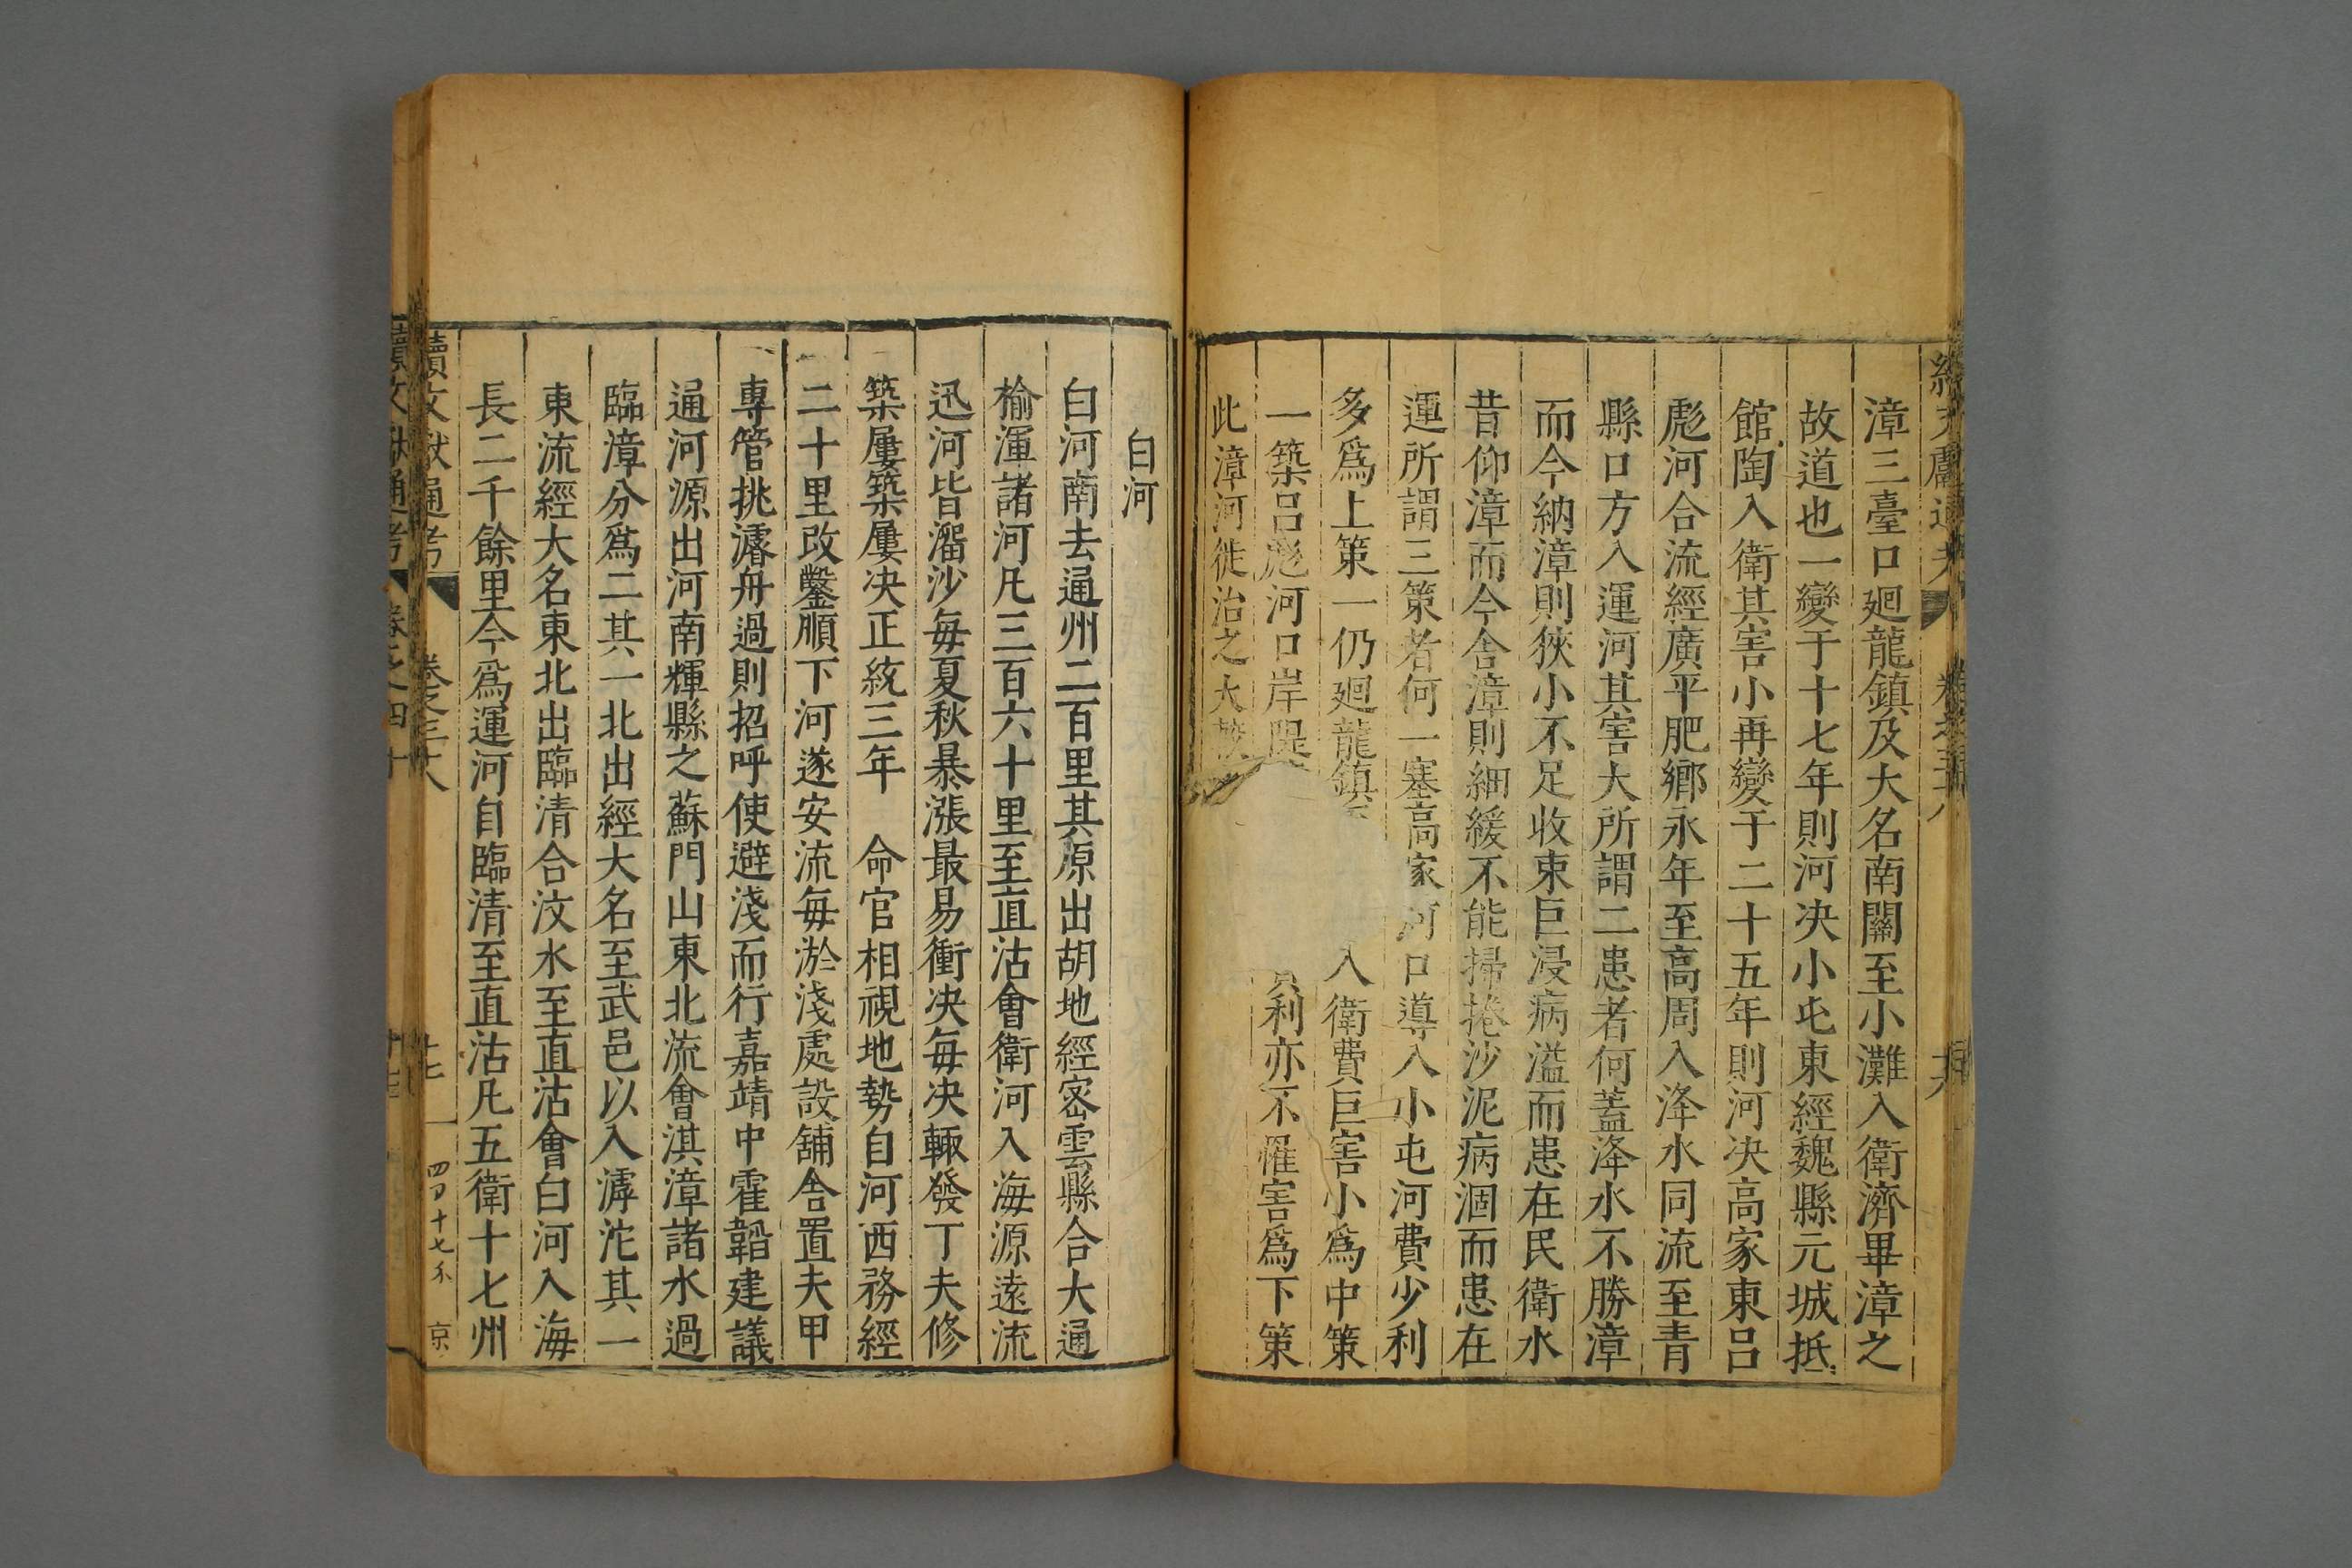 漳三臺口廻龍鎮及大名南關至小灘入衛濟畢漳之
故道也一變于十七年則河决小屯東經魏縣元城抵
館陶入衛其害小再變于二十五年則河决高家東呂
彪河合流經廣平肥鄉永年至高周入洚水同流至青
縣口方入運河其害大所謂二患者何蓋洚水不勝漳
而今納漳則狹小不足收束巨浸病溢而患在民衛水
昔仰漳而今舍漳則細緩不能掃捲沙泥病涸而患在
運所謂三策者何一塞高家河口導入小屯河費少利
多爲上策一仍廻龍鎮入衛費巨害小爲中策
一築呂彪河口岸隄利亦不罹害爲下策
此漳河徙治之大
白河
白河南去通州二百里其原出胡地經密雲縣合大通
榆渾諸河凡三百六十里至直沽會衛河入海源遠流
迅河皆溜沙每夏秋暴漲最易衝决每决輒發丁夫修
築屢築屢决正統三年 命官相視地勢自河西務經
二十里改鑿順下河遂安流每淤淺處設舖舍置夫甲
專管挑濬舟過則招呼使避淺而行嘉靖中霍韜建議
通河源出河南輝縣之蘇門山東北流會淇漳諸水過
臨漳分爲二其一北出經大名至武邑以入滹沱其一
東流經大名東北出臨清合汶水至直沽會白河入海
長二千餘里今爲運河自臨清至直沽凡五衛十七州
續文獻通考 卷之三十八 十七 四百十七 京
續文獻通考 卷之四十